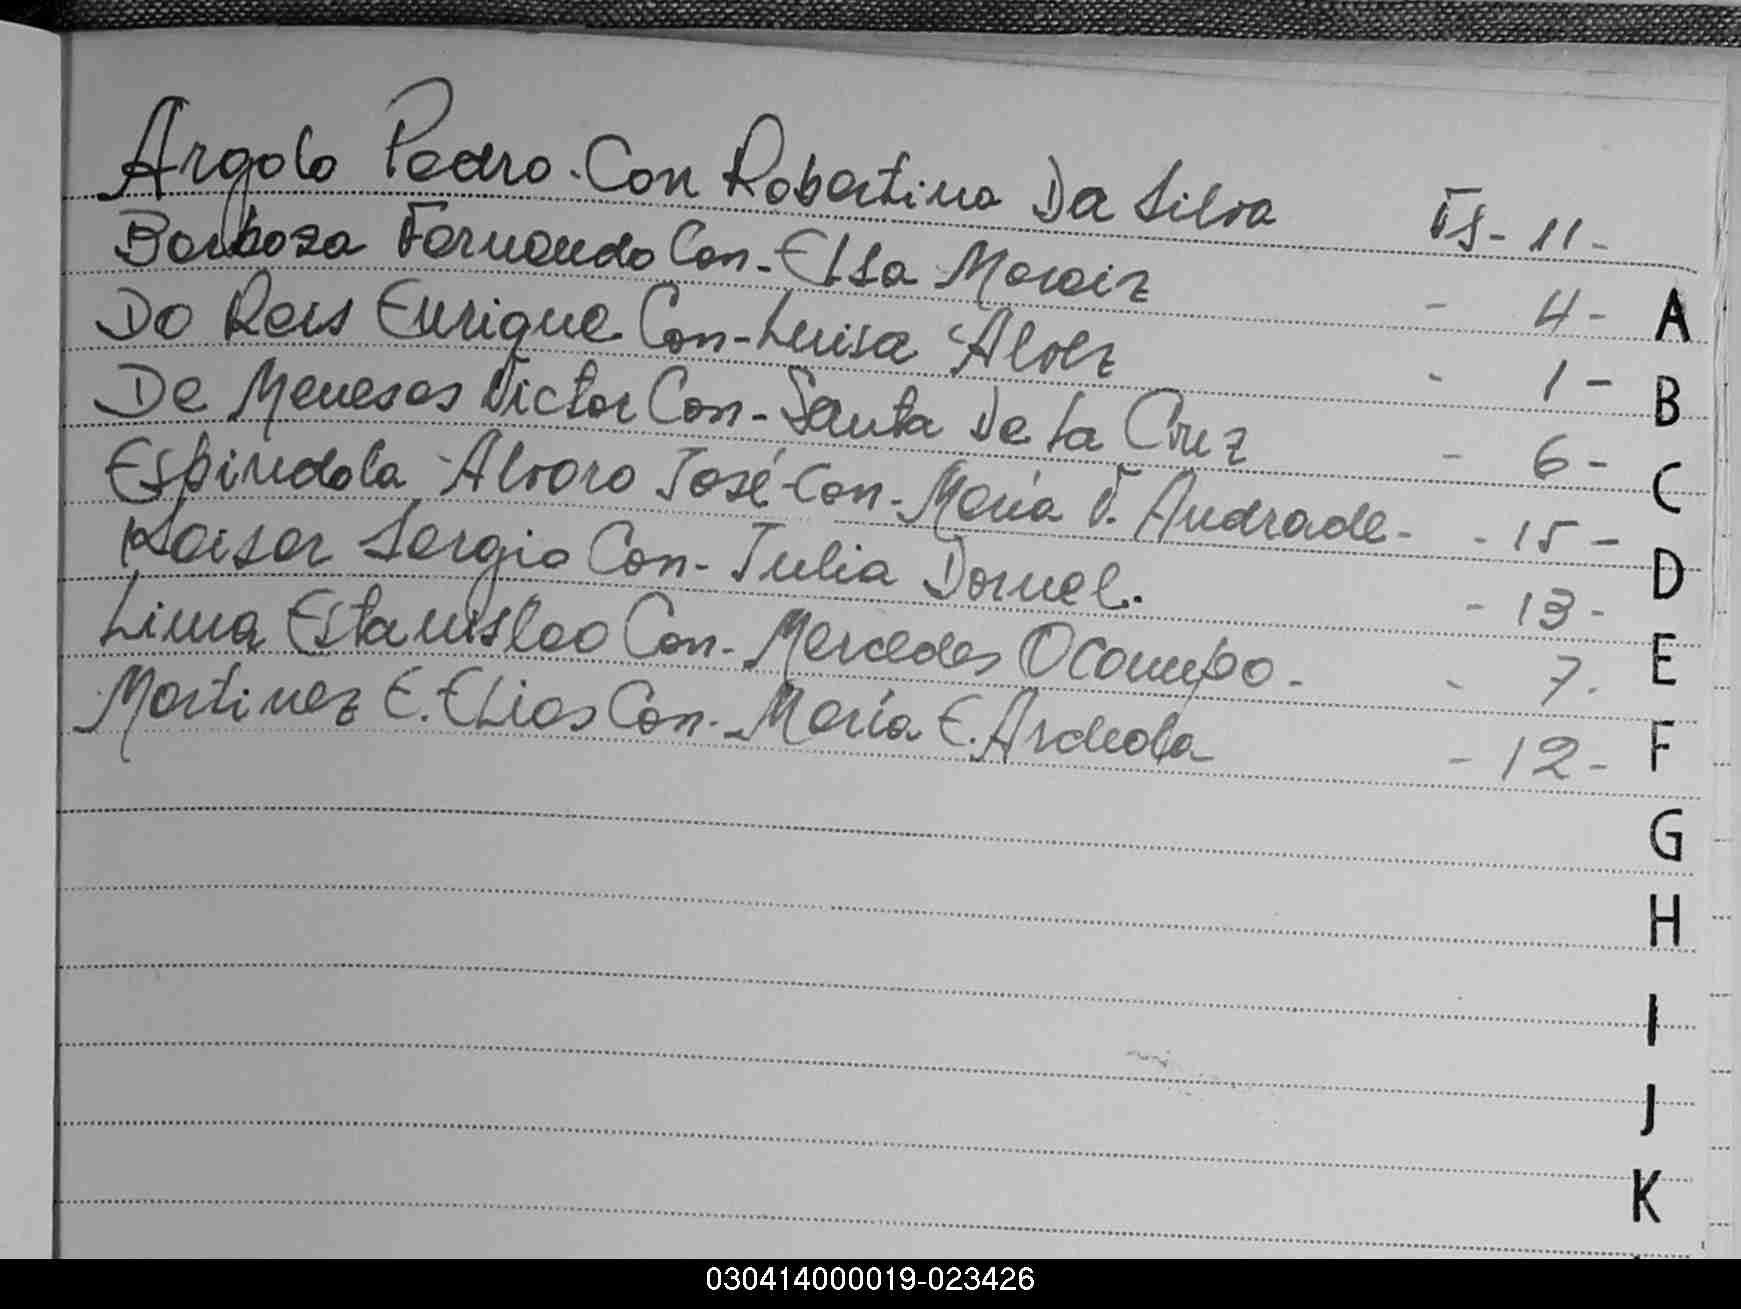 Argolo Pedro. Con Robertina Da Silva Fs- 11-
Barboza Fernando Con- Elsa Moraiz - 4-
Do Reis Enrique Con- Luisa Alvez - 1-
De Meneses Victor Con- Santa De La Cruz - 6-
Espindola Alvaro José Con- María F. Andrade- - 15-
Kaiser Sergio Con- Julia Dornel. - 13-
Lima Estanislao Con- Mercedes Ocampo- - 7-
Martinez E. Elias Con- María E. - 12-
A
B
C
D
E
F
G
H
I
J
K
030414000019-023426